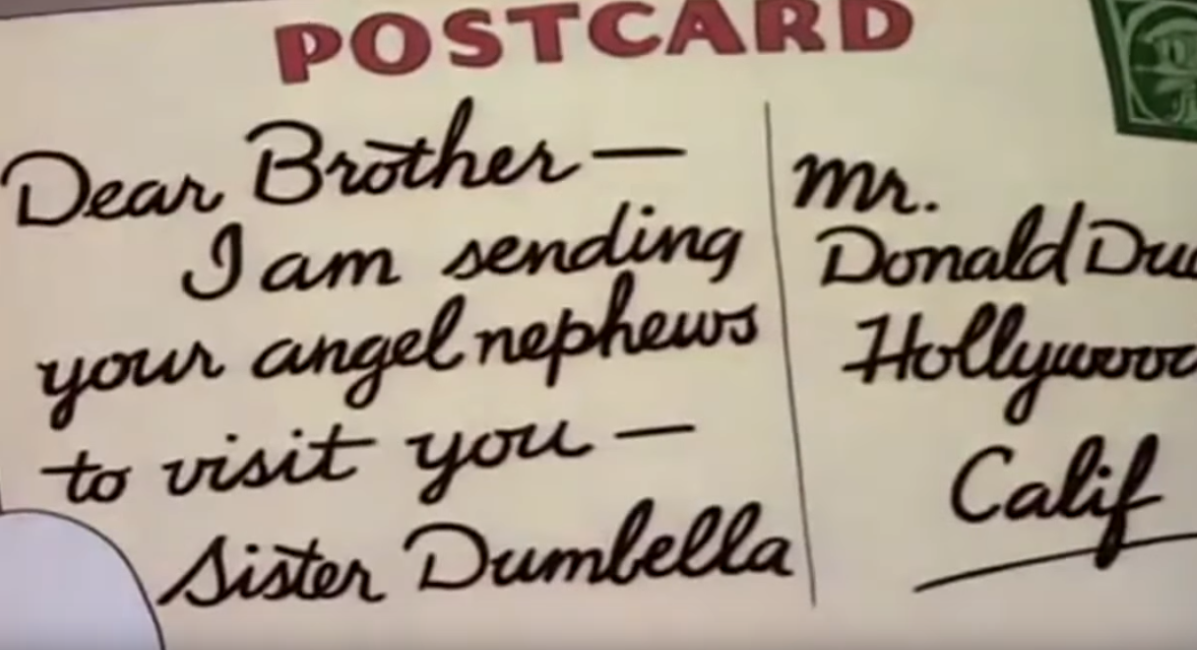 POSTCARD
Dear Brother —
I am sending
your angel nephews
to visit you —
Sister Dumbella
Mr.
Donald Du
Hollywoo
Calif